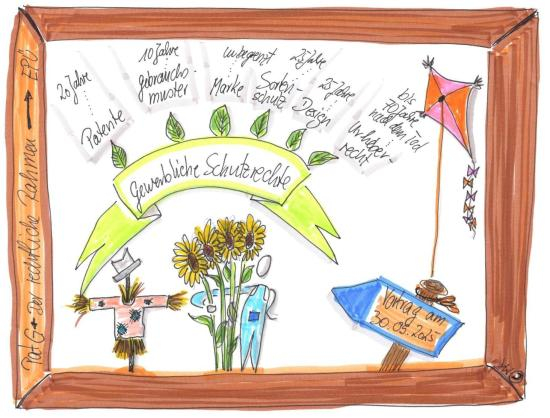 PatG + der rechtliche Rahmen → EPÜ
20 Jahre
Patente
10 Jahre
Gebrauchs-
muster
unbegrenzt
Marke
25 Jahre
Sorten-
schutz
25 Jahre
Design
bis
70 Jahre
nach dem Tod
Urheber
recht
Gewerbliche Schutzrechte
Vortrag am
30.09.2025